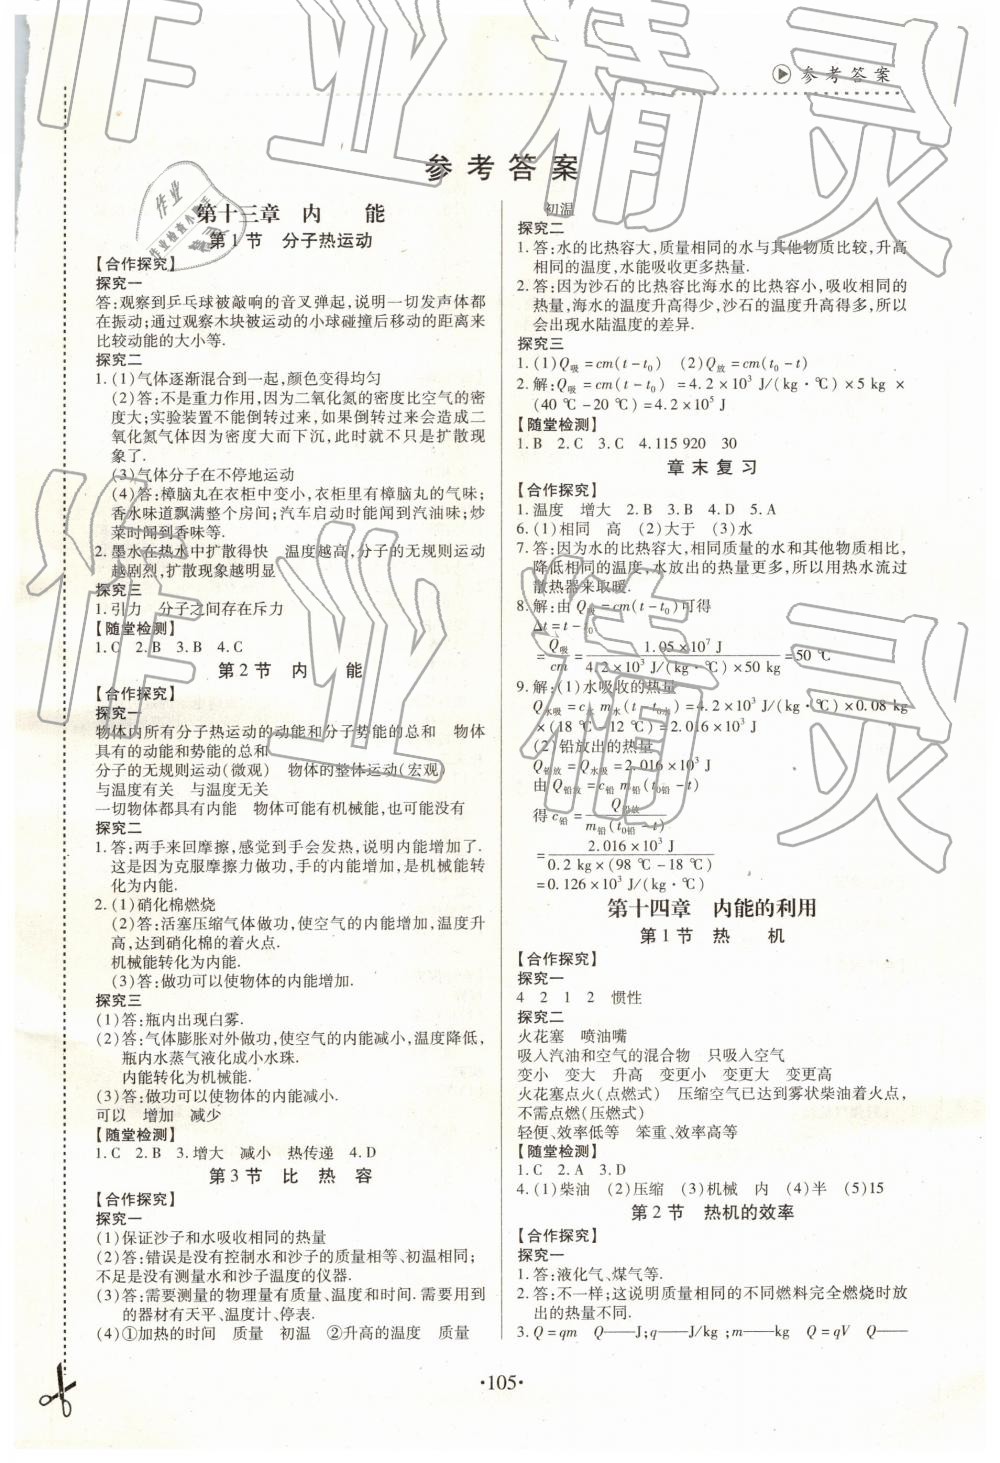 参考答案
参考答案
第十三章 内 能
第1节 分子热运动
【合作探究】
探究一
答:观察到乒乓球被敲响的音叉弹起,说明一切发声体都
在振动;通过观察木块被运动的小球碰撞后移动的距离来
比较动能的大小等.
探究二
1.(1)气体逐渐混合到一起,颜色变得均匀
(2)答:不是重力作用,因为二氧化氮的密度比空气的密
度大;实验装置不能倒转过来,如果倒转过来会造成二
氧化氮气体因为密度大而下沉,此时就不只是扩散现
象了.
(3)气体分子在不停地运动
(4)答:樟脑丸在衣柜中变小,衣柜里有樟脑丸的气味;
香水味道飘满整个房间;汽车启动时能闻到汽油味;炒
菜时闻到香味等.
2.墨水在热水中扩散得快 温度越高,分子的无规则运动
越剧烈,扩散现象越明显
探究三
1.引力 分子之间存在斥力
【随堂检测】
1.C 2.B 3.B 4.C
第2节 内 能
【合作探究】
探究一
物体内所有分子热运动的动能和分子势能的总和 物体
具有的动能和势能的总和
分子的无规则运动(微观) 物体的整体运动(宏观)
与温度有关 与温度无关
一切物体都具有内能 物体可能有机械能,也可能没有
探究二
1.答:两手来回摩擦,感觉到手会发热,说明内能增加了.
这是因为克服摩擦力做功,手的内能增加,是机械能转
化为内能.
2.(1)硝化棉燃烧
(2)答:活塞压缩气体做功,使空气的内能增加,温度升
高,达到硝化棉的着火点.
机械能转化为内能.
(3)答:做功可以使物体的内能增加.
探究三
(1)答:瓶内出现白雾.
(2)答:气体膨胀对外做功,使空气的内能减小,温度降低,
瓶内水蒸气液化成小水珠.
内能转化为机械能.
(3)答:做功可以使物体的内能减小.
可以 增加 减少
【随堂检测】
1.C 2.B 3.增大 减小 热传递 4.D
第3节 比 热 容
【合作探究】
探究一
(1)保证沙子和水吸收相同的热量
(2)答:错误是没有控制水和沙子的质量相等、初温相同;
不足是没有测量水和沙子温度的仪器.
(3)答:需要测量的物理量有质量、温度和时间. 需要用到
的器材有天平、温度计、停表.
(4)①加热的时间 质量 初温 ②升高的温度 质量
初温
探究二
1.答:水的比热容大,质量相同的水与其他物质比较,升高
相同的温度,水能吸收更多热量.
2.答:因为沙石的比热容比海水的比热容小,吸收相同的
热量,海水的温度升高得少,沙石的温度升高得多,所以
会出现水陆温度的差异.
探究三
1.(1)Q吸=cm(t-t₀) (2)Q放=cm(t₀-t)
2.解:Q吸=cm(t-t₀)=4.2×10³ J/(kg·℃)×5 kg×
(40 ℃-20 ℃)=4.2×10⁵ J
【随堂检测】
1.B 2.C 3.C 4.115 920 30
章末复习
【合作探究】
1.温度 增大 2.B 3.B 4.D 5.A
6.(1)相同 高 (2)大于 (3)水
7.答:因为水的比热容大,相同质量的水和其他物质相比,
降低相同的温度,水放出的热量更多,所以用热水流过
散热器来取暖.
8.解:由 Q吸=cm(t-t₀)可得
Δt=t-t₀
=Q吸/cm=1.05×10⁷ J/4.2×10³ J/(kg·℃)×50 kg=50 ℃
9.解:(1)水吸收的热量
Q水吸=c水m水(t-t₀水)=4.2×10³ J/(kg·℃)×0.08 kg
×(18 ℃-12 ℃)=2.016×10³ J
(2)铅放出的热量
Q铅放=Q水吸=2.016×10³ J
由 Q铅放=c铅m铅(t₀铅-t)
得 c铅=Q铅放/m铅(t₀铅-t)
=2.016×10³ J/0.2 kg×(98 ℃-18 ℃)
=0.126×10³ J/(kg·℃)
第十四章 内能的利用
第1节 热 机
【合作探究】
探究一
4 2 1 2 惯性
探究二
火花塞 喷油嘴
吸入汽油和空气的混合物 只吸入空气
变小 变大 升高 变更小 变更大 变更高
火花塞点火(点燃式) 压缩空气已达到雾状柴油着火点,
不需点燃(压燃式)
轻便、效率低等 笨重、效率高等
【随堂检测】
1.C 2.A 3.D
4.(1)柴油 (2)压缩 (3)机械 内 (4)半 (5)15
第2节 热机的效率
【合作探究】
探究一
1.答:液化气、煤气等.
2.答:不一样;这说明质量相同的不同燃料完全燃烧时放
出的热量不同.
3.Q=qm Q——J;q——J/kg;m——kg Q=qV Q——
·105·
作业精灵
作业精灵
作业
作业检查小助手
精灵